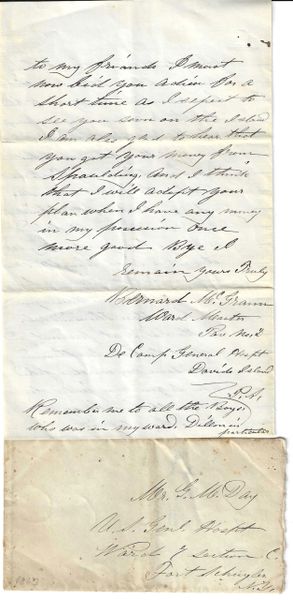 to my friends I must
now bid you adieu for a
short time as I expect to
see you soon on the Island
I am also glad to hear that
you got your money from
Spaulding. And I think
that I will adopt your
plan when I have any money
in my possession once
more good Bye I
remain yours Truly
Bernard Mc Grann
Ward Master
Pav No. 2
De Camp General Hospt
Davids Island
Remember me to all the Boys
who was in my ward. Dillon in
particular
Mr. G. M. Day
U. S. Genl Hospt
Ward Section C.
Fort Schuyler
N.Y.